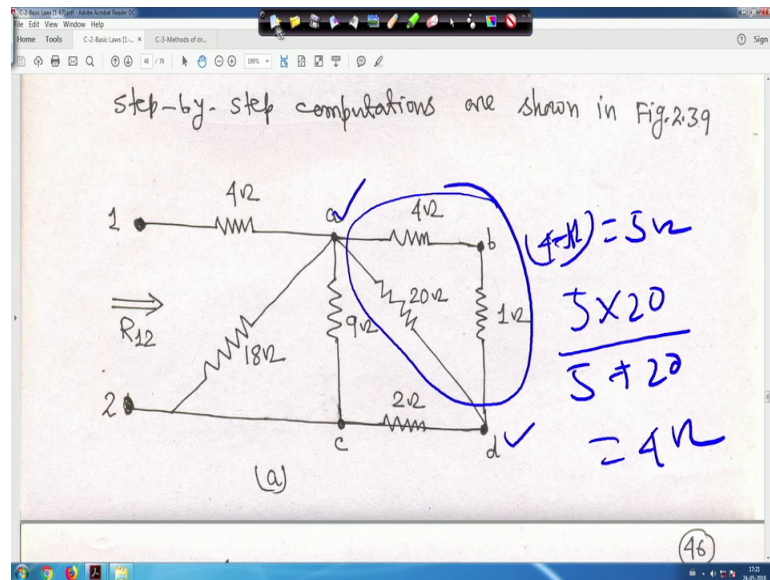 C-2-Basic Laws [1-67].pdf - Adobe Acrobat Reader DC
File Edit View Window Help
Home Tools C-2-Basic Laws [1-... × C-3-Methods of cir... Sign
48 / 70
step-by-step computations are shown in Fig.2.39
4Ω
1
a
4Ω
b
(4+1) = 5Ω
R12
18Ω
9Ω
20Ω
1Ω
5×20
5+20
2
2Ω
c
d
= 4Ω
(a)
46
17:21